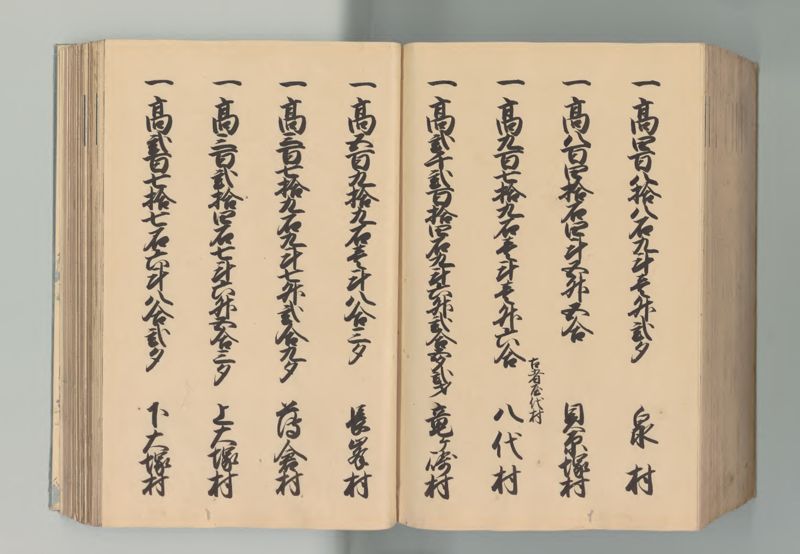 一 高四百八拾八石九斗壱升弐夕 泉村
一 高八百四拾石四斗五升五合 貝原塚村
一 高九百七拾九石壱斗壱升六合 八代村
古者屋代村
一 高弐千弐百拾四石九斗六升弐合五夕弐才 竜ヶ崎村
一 高六百九拾九石壱斗八合三夕 長峯村
一 高三百七拾九石九斗七升弐合九夕 薄倉村
一 高三百弐拾四石七斗六升五合三夕 上大塚村
一 高弐百七拾七石六斗八合弐夕 下大塚村